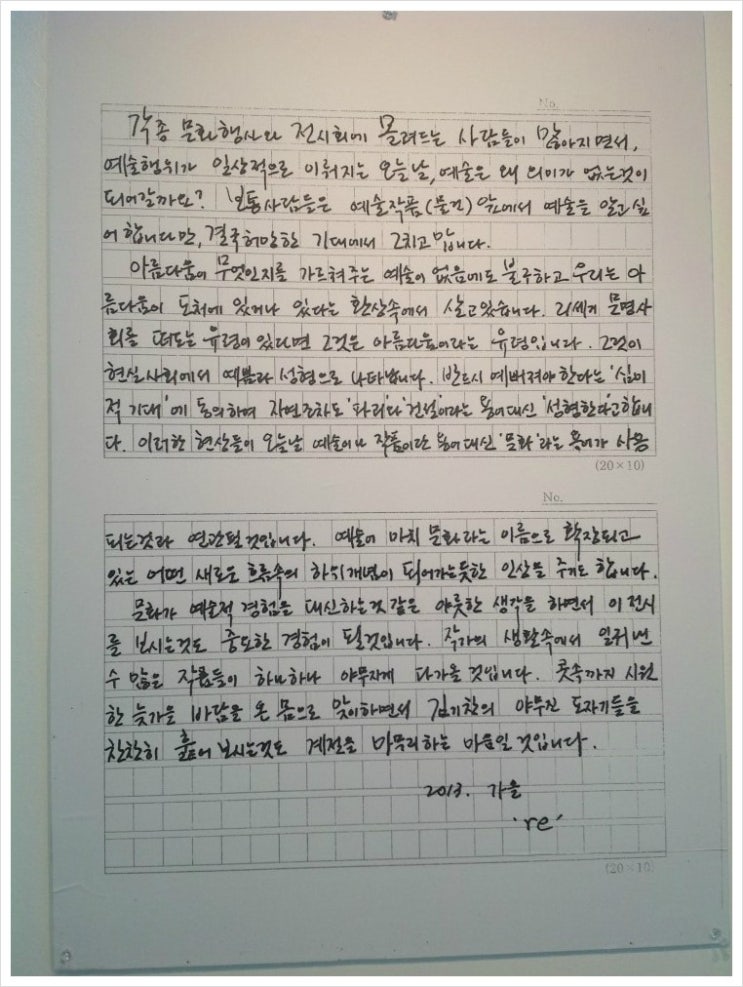 No.
각종 문화행사와 전시회에 몰려드는 사람들이 많아지면서,
예술행위가 일상적으로 이뤄지는 오늘날, 예술은 왜 의미가 없는것이
되어갈까요? 보통사람들은 예술작품(물건)앞에서 예술을 알고 싶
어 합니다만, 결국허망한 기대에서 그치고 맙니다.
아름다움이 무엇인지를 가르쳐주는 예술이 없음에도 불구하고 우리는 아
름다움이 도처에 있거나 있다는 환상속에서 살고있습니다. 21세기 문명사
회를 떠도는 유령이 있다면 그것은 아름다움이라는 유령입니다. 그것이
현실사회에서 예쁨과 성형으로 나타납니다. 반드시 예뻐져야한다는 '심미
적 기대'에 동의하여 자연조차도 '건설'이라는 용어대신 '성형한다'고합니
다. 이러한 현상들이 오늘날 예술이나 작품이란 용어대신 '문화'라는 용어가 사용
(20×10)
No.
되는것과 연관될것입니다. 예술이 마치 문화라는 이름으로 확장되고
있는 어떤 새로운 흐름속의 하위개념이 되어가는듯한 인상을 주기도 합니다.
문화가 예술적 경험을 대신하는것 같은 야릇한 생각을 하면서 이 전시
를 보시는것도 중요한 경험이 될것입니다. 작가의 생활속에서 일궈낸
수 많은 작품들이 하나하나 야무지게 다가올 것입니다. 콧속까지 시원
한 늦가을 바람을 온 몸으로 맞이하면서 김기찬의 야무진 도자기들을
찬찬히 훑어 보시는것도 계절을 마무리하는 마음일 것입니다.
2013. 가을
're'
(20×10)